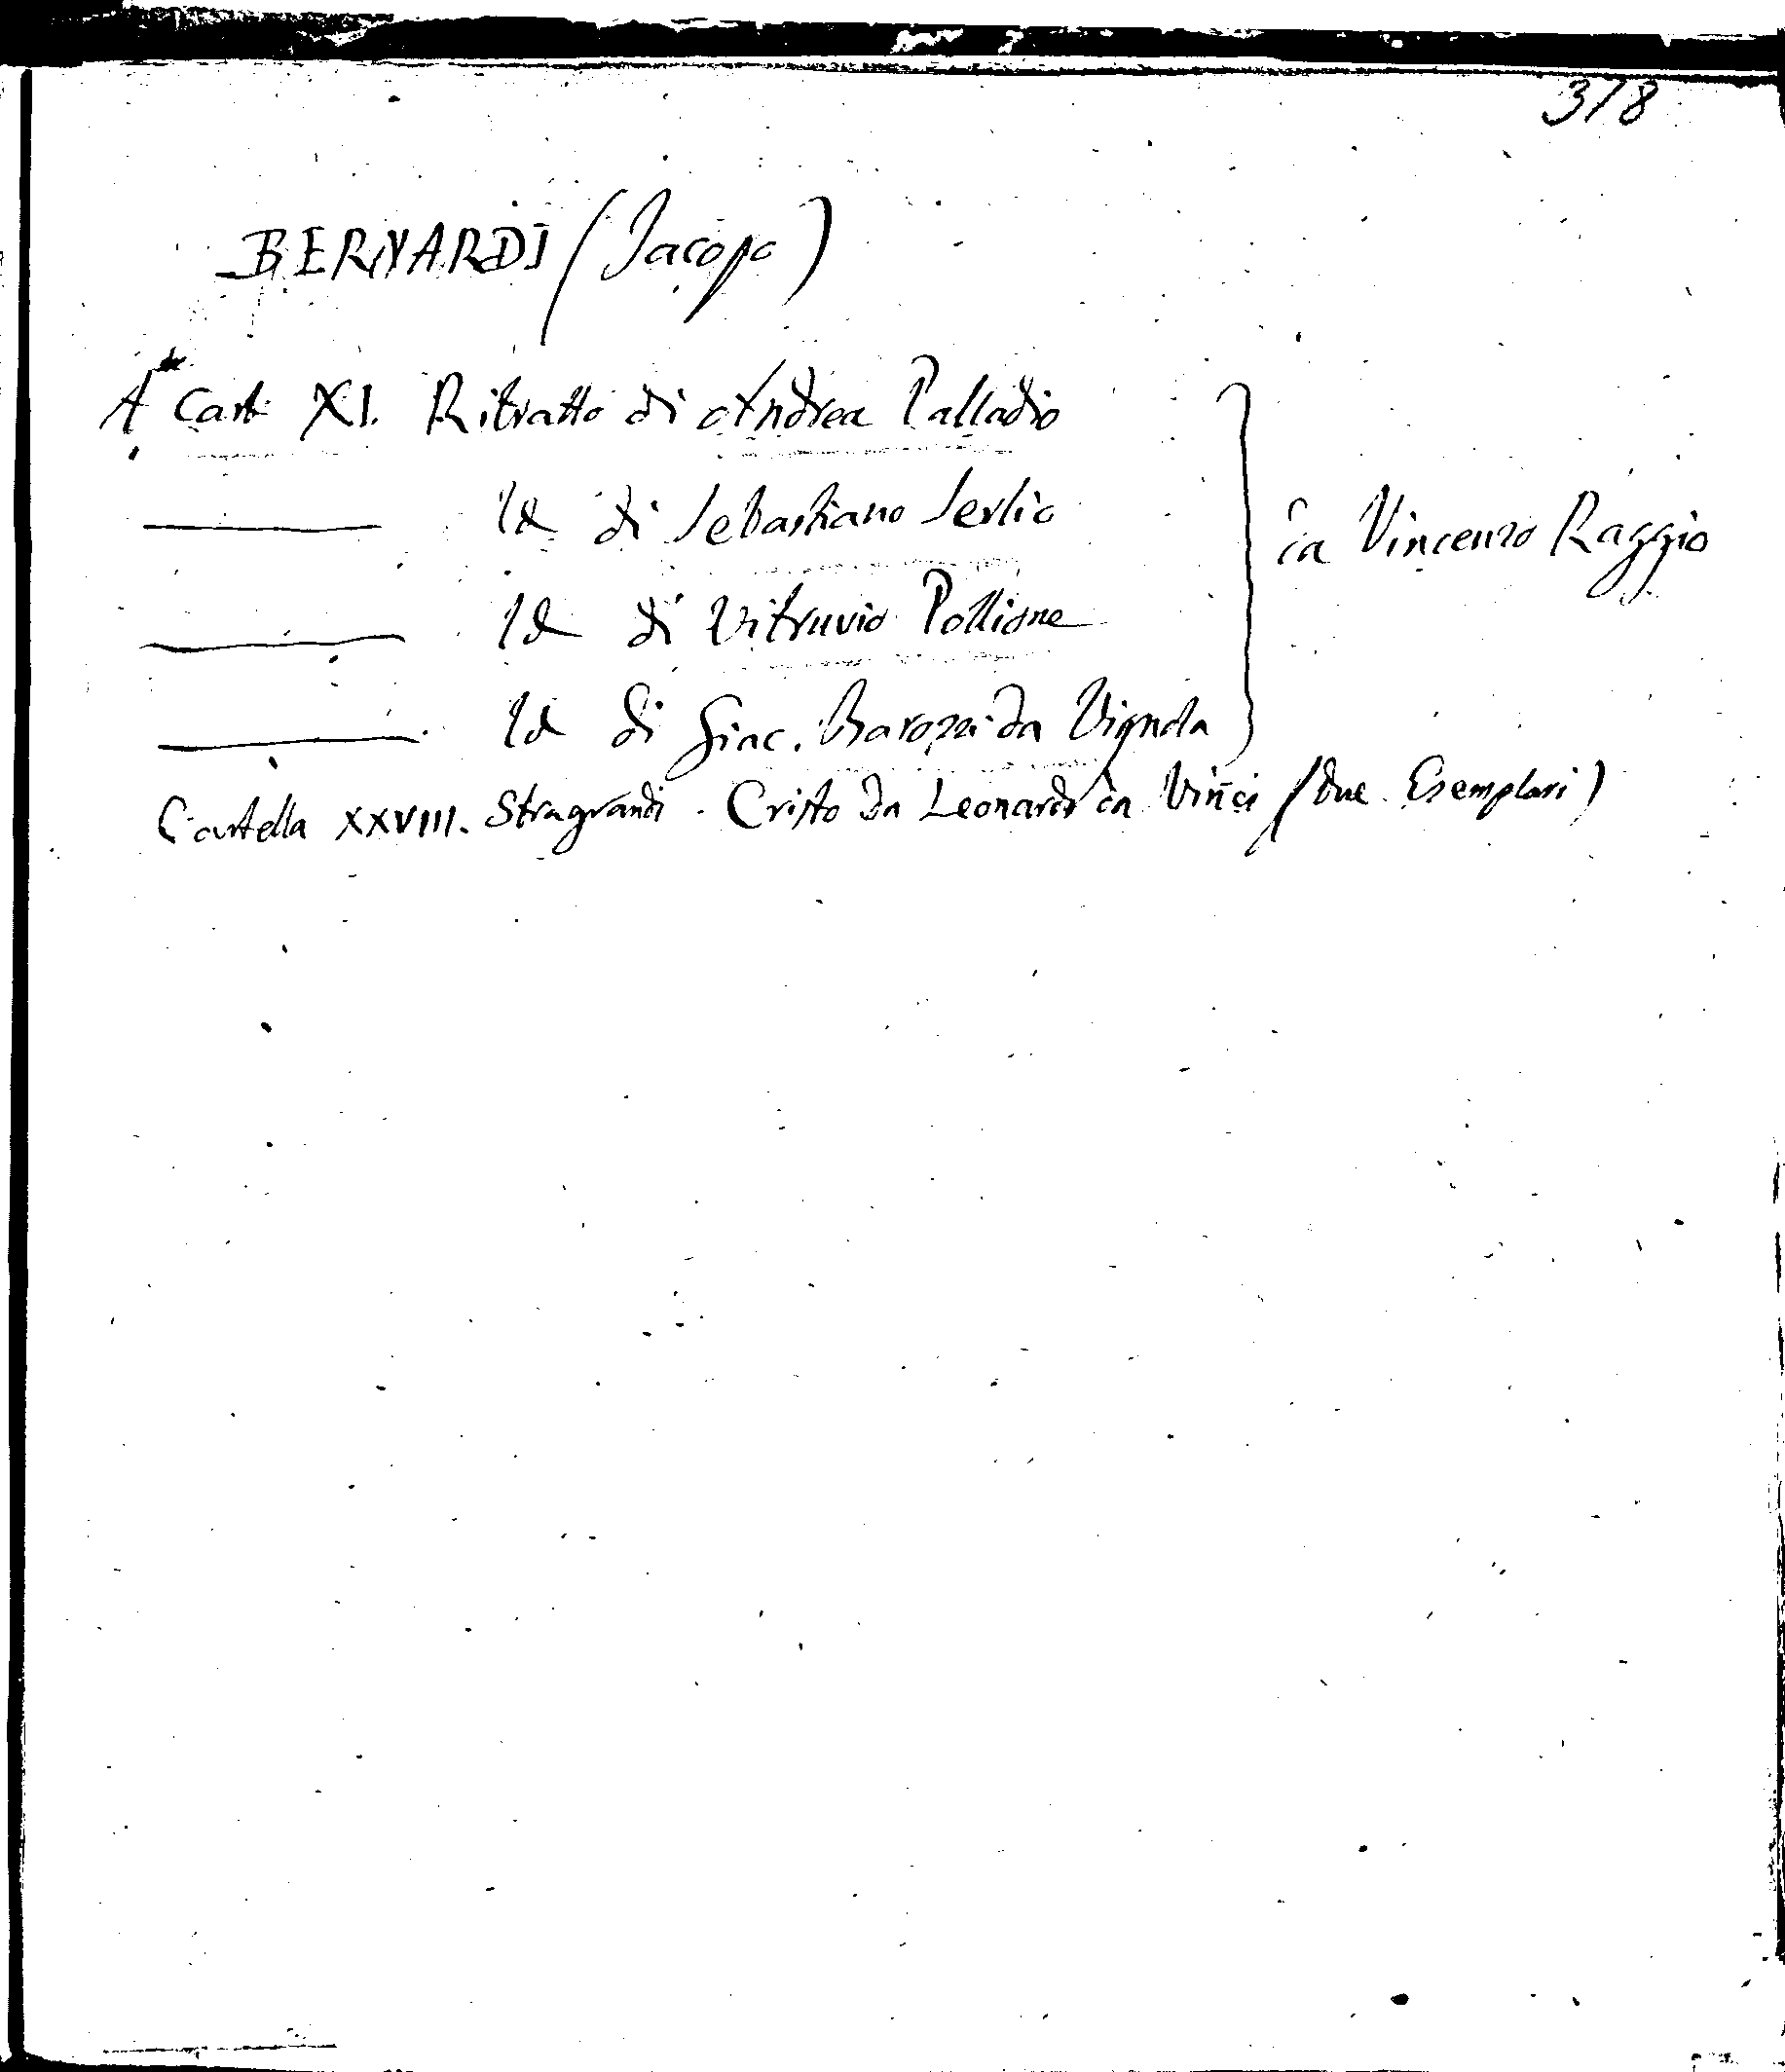 318
BERNARDI (Jacopo)
A Cart XI. Ritratto di Andrea Palladio
Id di Sebastiano Serlio
da Vincenzo Raggio
Id di Vitruvio Pollione
Id di Giac. Barozzi da Vignola
Cartella XXVIII. Stragrandi. Cristo da Leonardo da Vinci (due Esemplari)